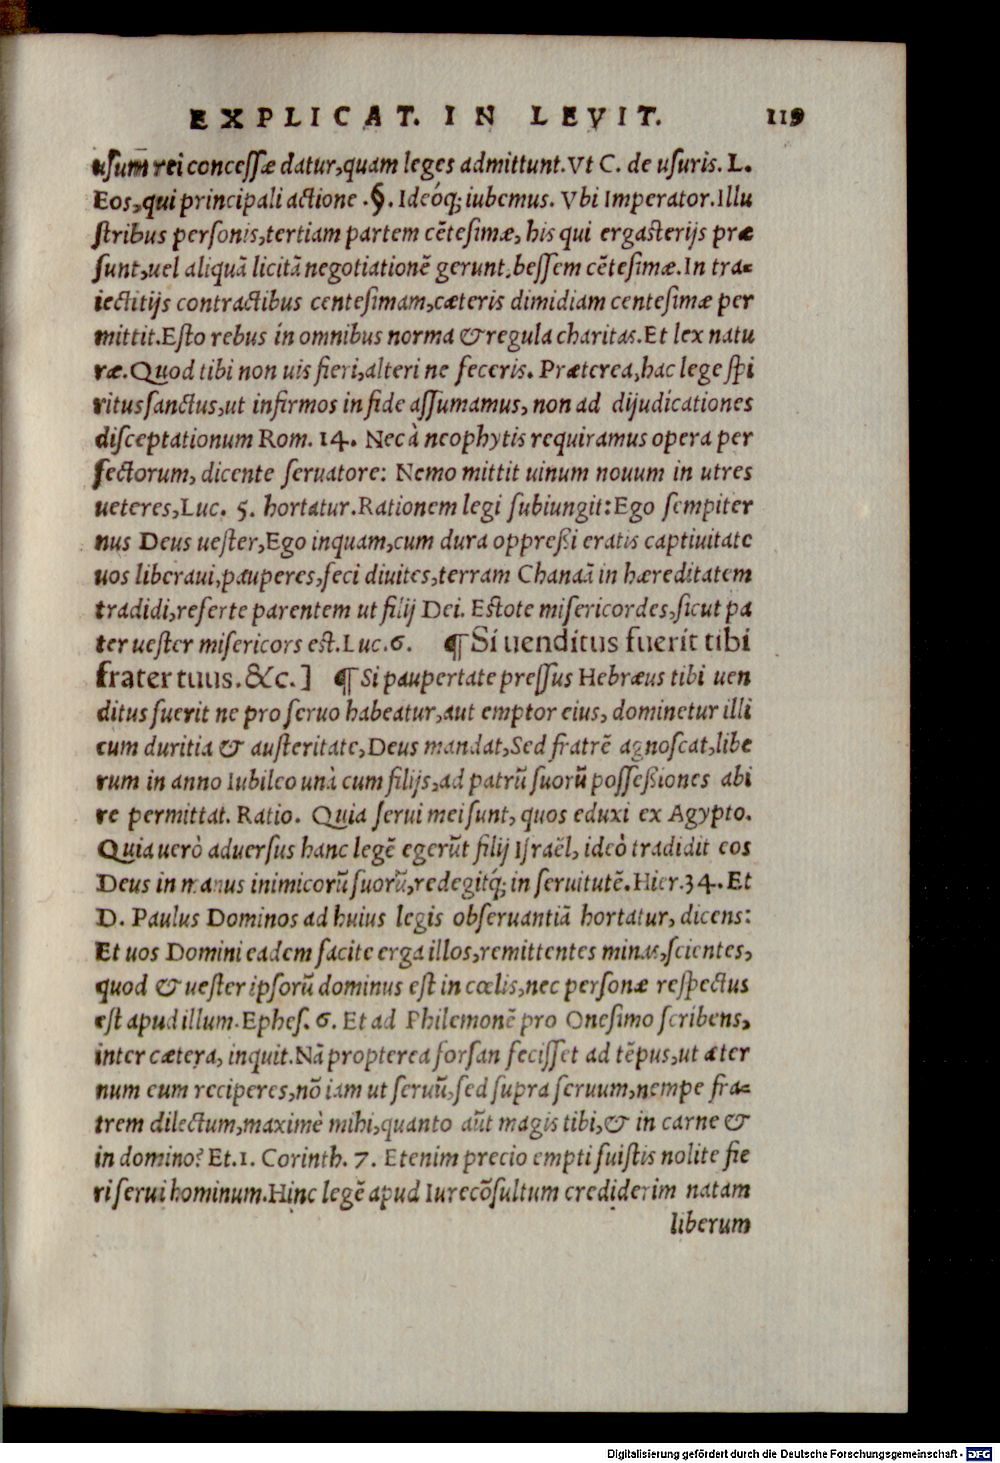 EXPLICAT. IN LEVIT. 119
usum̅ rei concessæ datur, quam leges admittunt. Vt C. de usuris. L.
Eos, qui principali actione .§. Ideóq; iubemus. Vbi Imperator. Illu
stribus personis, tertiam partem cẽtesimæ, his qui ergasterijs præ
sunt, uel aliquã licitã negotiationẽ gerunt, bessem cẽtesimæ. In tra-
iectitijs contractibus centesimam, cæteris dimidiam centesimæ per
mittit. Esto rebus in omnibus norma & regula charitas. Et lex natu
ræ. Quod tibi non uis fieri, alteri ne feceris. Præterea, hac lege spi
ritus sanctus, ut infirmos in fide assumamus, non ad dijudicationes
disceptationum Rom. 14. Nec à neophytis requiramus opera per
fectorum, dicente seruatore: Nemo mittit uinum nouum in utres
ueteres, Luc. 5. hortatur. Rationem legi subiungit: Ego sempiter
nus Deus uester, Ego inquam, cum dura oppreßi eratis captiuitate
uos liberaui, pauperes, feci diuites, terram Chanaã in hæreditatem
tradidi, referte parentem ut filij Dei. Estote misericordes, sicut pa
ter uester misericors est. Luc. 6. ¶ Si uenditus fuerit tibi
frater tuus. &c.] ¶ Si paupertate pressus Hebræus tibi uen
ditus fuerit ne pro seruo habeatur, aut emptor eius, dominetur illi
cum duritia & austeritate, Deus mandat, Sed fratrẽ agnoscat, libe
rum in anno Iubileo unà cum filijs, ad patrũ suorũ posseßiones abi
re permittat. Ratio. Quia serui mei sunt, quos eduxi ex Agypto.
Quia uerò aduersus hanc legẽ egerũt filij Israẽl, ideò tradidit eos
Deus in manus inimicorũ suorũ, redegitq́; in seruitutẽ. Hier. 34. Et
D. Paulus Dominos ad huius legis obseruantiã hortatur, dicens:
Et uos Domini eadem facite erga illos, remittentes minas, scientes,
quod & uester ipsorũ dominus est in cœlis, nec personæ respectus
est apud illum. Ephes. 6. Et ad Philemonẽ pro Onesimo scribens,
inter cætera, inquit. Nã propterea forsan fecisset ad tẽpus, ut æter
num eum reciperes, nõ iam ut seruũ, sed supra seruum, nempe fra-
trem dilectum, maximè mihi, quanto aũt magis tibi, & in carne &
in domino? Et. 1. Corinth. 7. Etenim precio empti fuistis nolite fie
ri serui hominum. Hinc legẽ apud Iurecõsultum crediderim natam
liberum
Digitalisierung gefördert durch die Deutsche Forschungsgemeinschaft - DFG